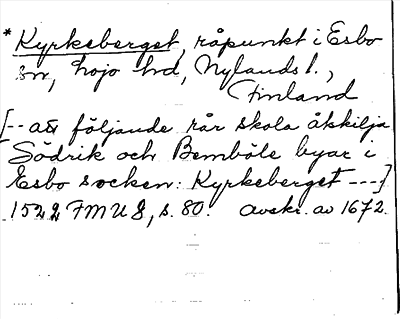 * Kyrkeberget, råpunkt i Esbo
sn, Lojo hd, Nylands l.,
Finland
[-- att följande rår skola åtskilja
Södrik och Bemböle byar i
Esbo socken: Kyrkeberget ---]
1522 FMU 8, s. 80. Avskr. av 1672.